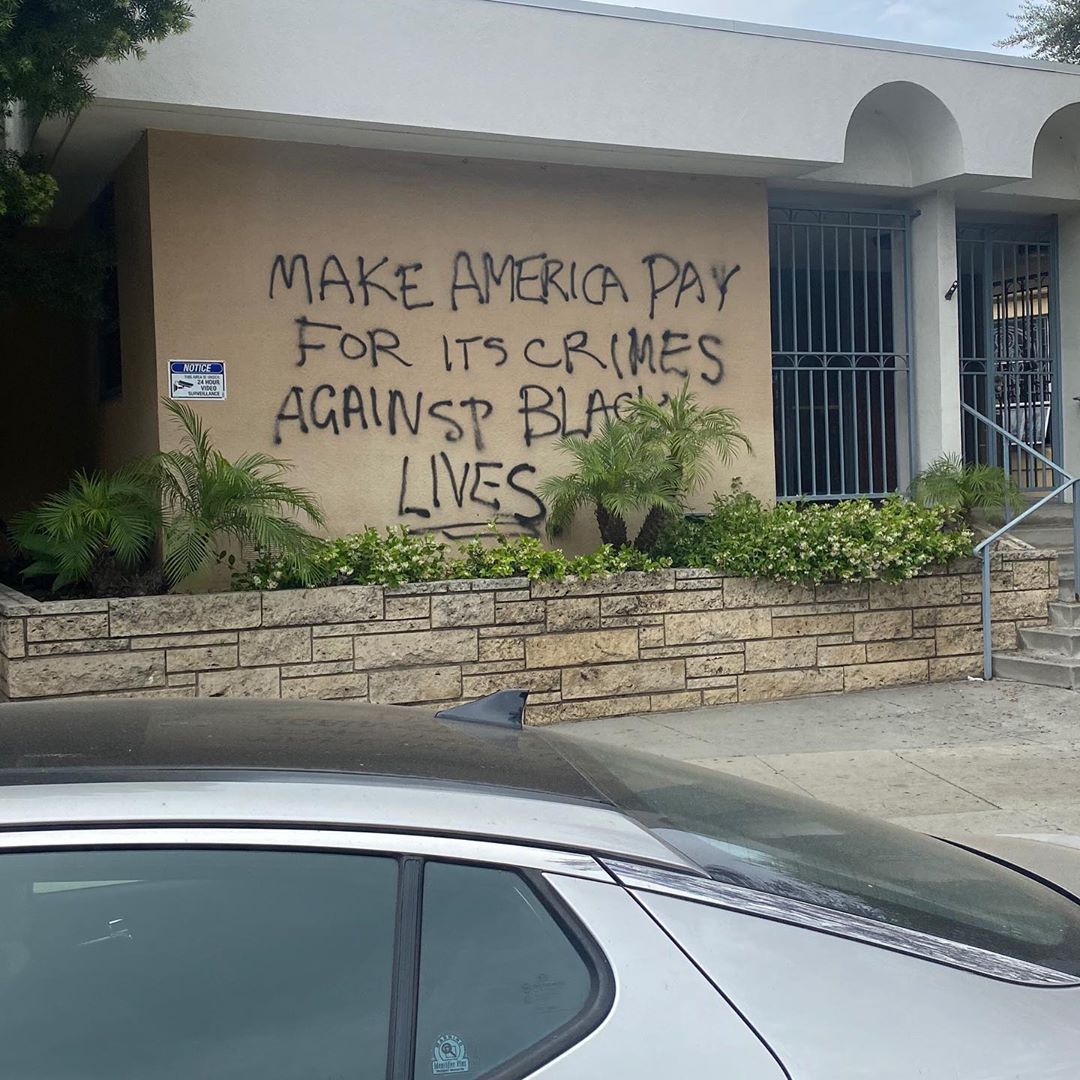 MAKE AMERICA PAY
FOR ITS CRIMES
AGAINST BLACK
LIVES
NOTICE
THIS AREA IS UNDER
24 HOUR
VIDEO
SURVEILLANCE